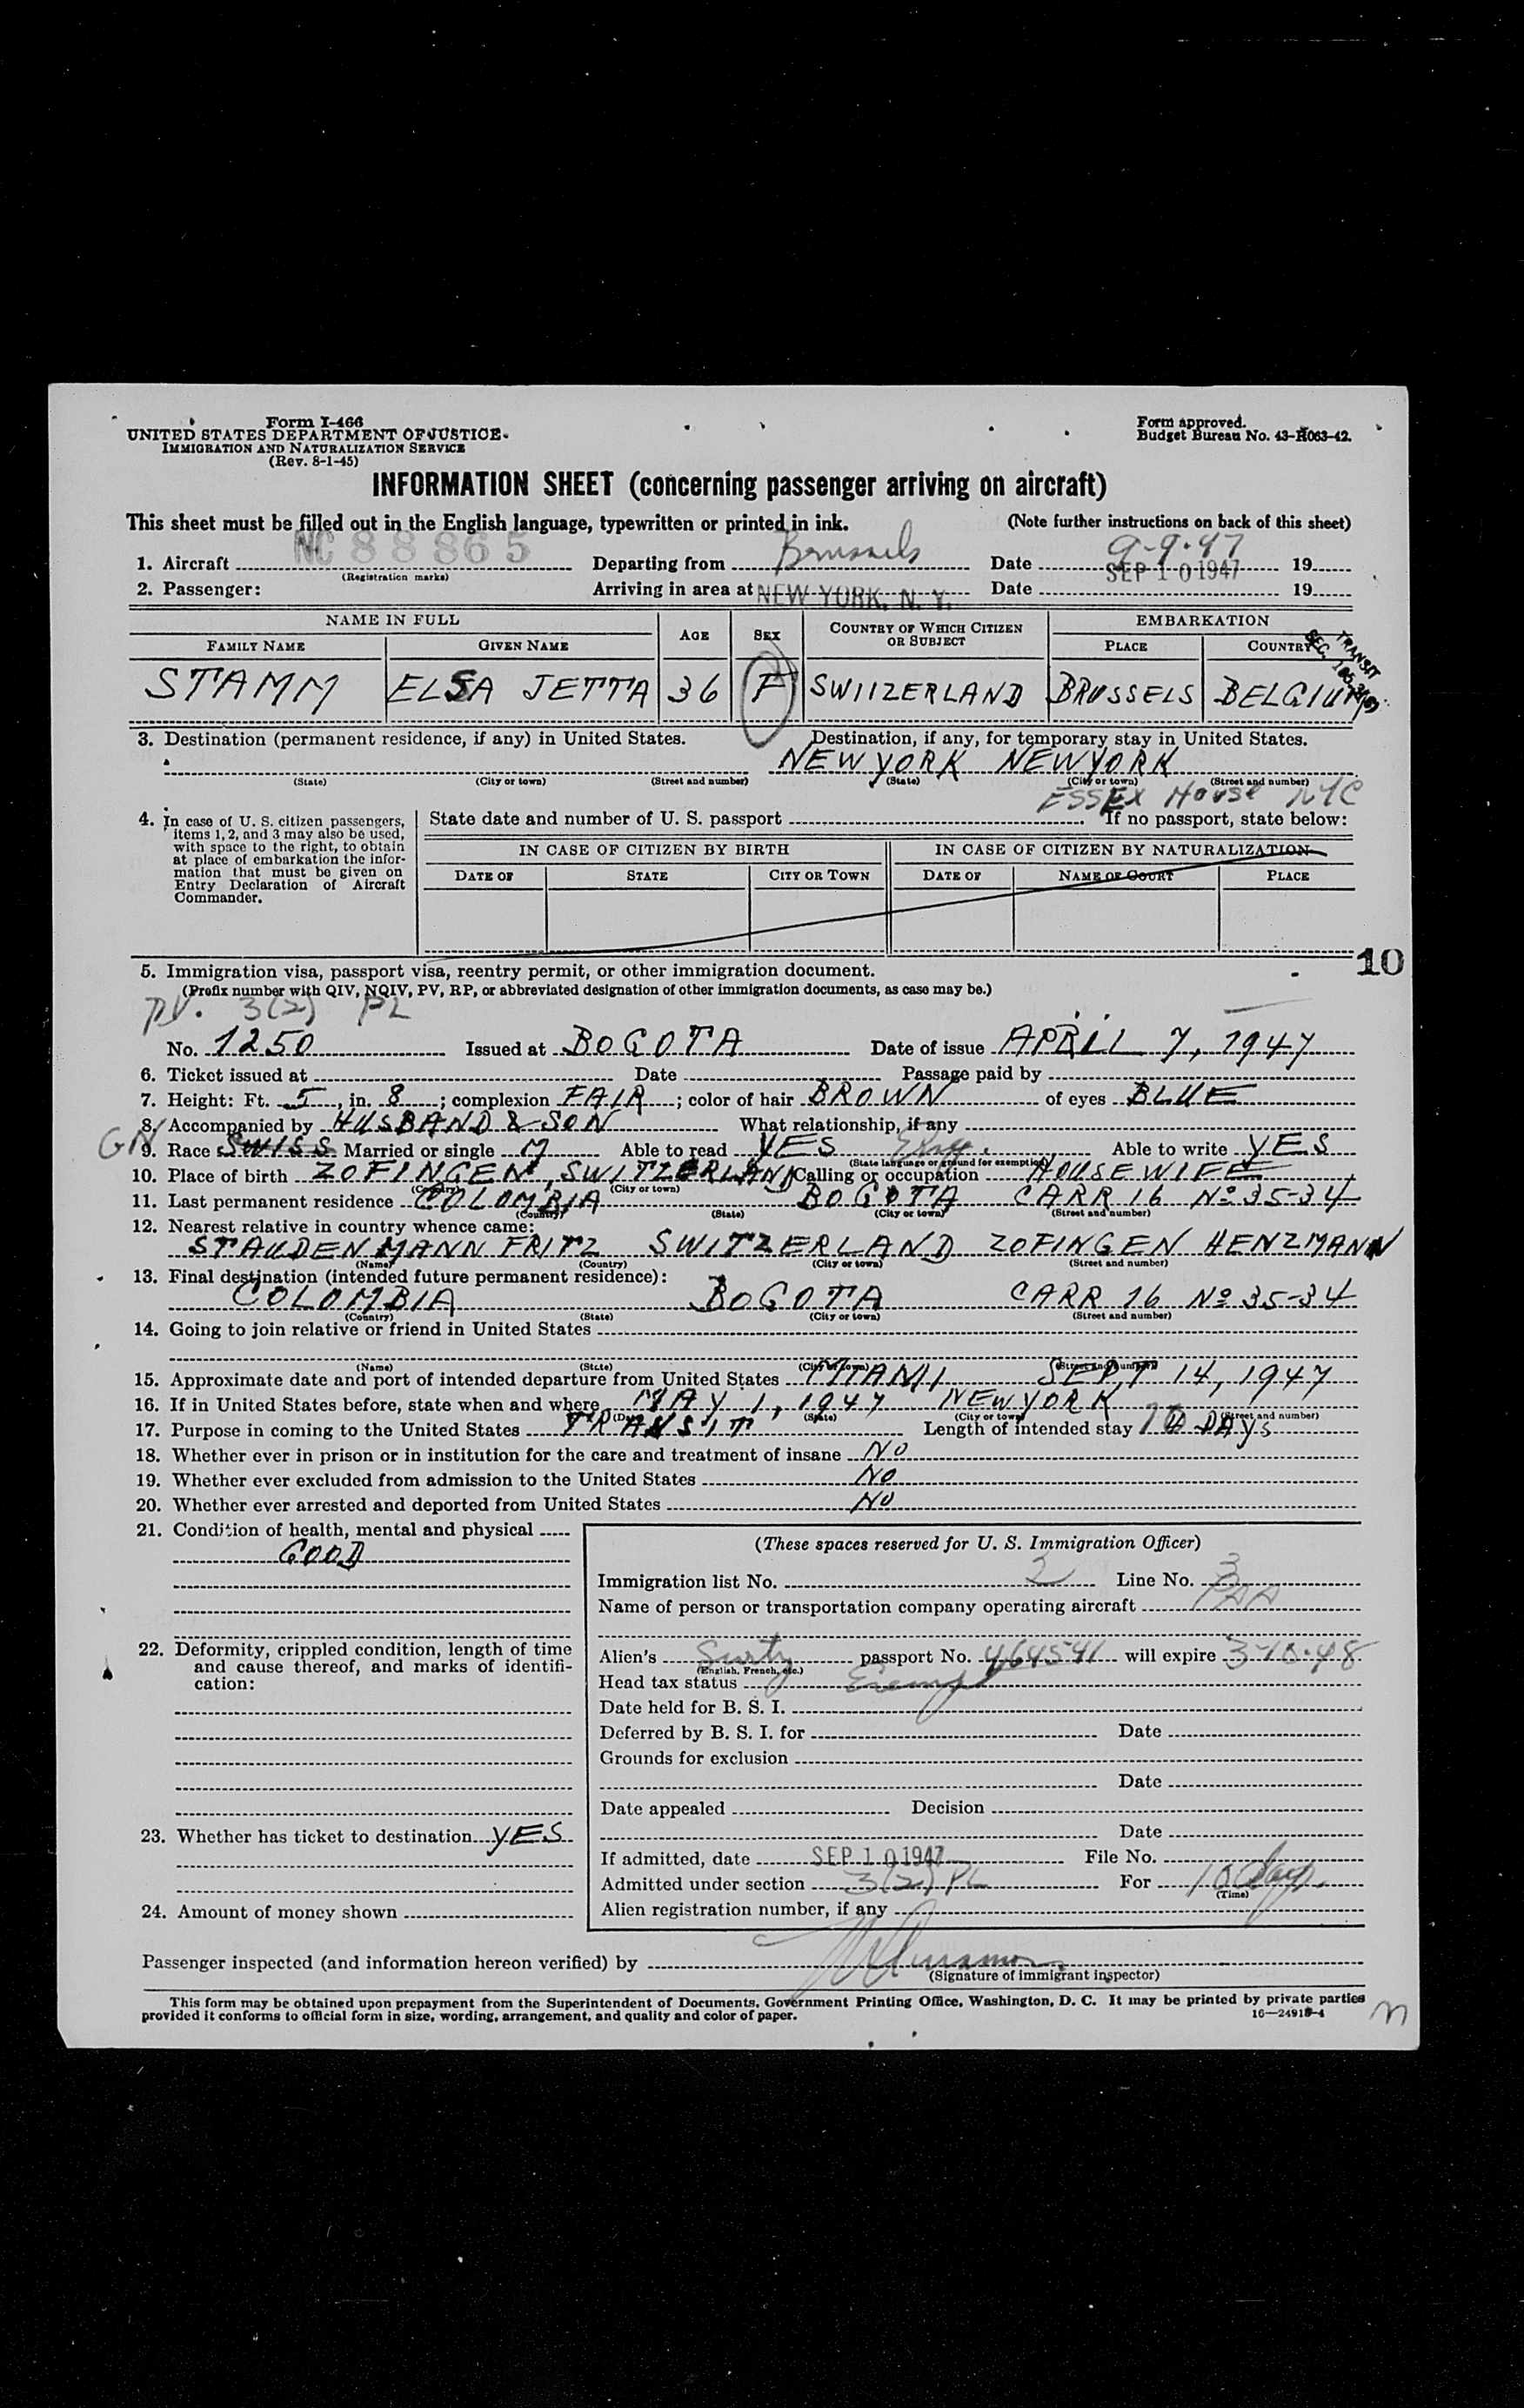 Form I-466
UNITED STATES DEPARTMENT OF JUSTICE
IMMIGRATION AND NATURALIZATION SERVICE
(Rev. 8-1-45)
Form approved.
Budget Bureau No. 43-R063-42.
INFORMATION SHEET (concerning passenger arriving on aircraft)
This sheet must be filled out in the English language, typewritten or printed in ink. (Note further instructions on back of this sheet)
1. Aircraft NC 88865 Departing from Brussels Date 9-9-47 19
(Registration marks)
2. Passenger: Arriving in area at NEW YORK, N. Y. Date SEP 10 1947 19
NAME IN FULL AGE SEX COUNTRY OF WHICH CITIZEN OR SUBJECT EMBARKATION
FAMILY NAME GIVEN NAME PLACE COUNTRY
TRANSIT
STAMM ELSA JETTA 36 F SWIIZERLAND BRUSSELS BELGIUM
3. Destination (permanent residence, if any) in United States. Destination, if any, for temporary stay in United States.
NEW YORK NEW YORK
(State) (City or town) (Street and number) (State) (City or town) (Street and number)
ESSEX House NYC
4. In case of U. S. citizen passengers, items 1, 2, and 3 may also be used, with space to the right, to obtain at place of embarkation the information that must be given on Entry Declaration of Aircraft Commander.
State date and number of U. S. passport If no passport, state below:
IN CASE OF CITIZEN BY BIRTH IN CASE OF CITIZEN BY NATURALIZATION
DATE OF STATE CITY OR TOWN DATE OF NAME OF COURT PLACE
10
5. Immigration visa, passport visa, reentry permit, or other immigration document.
(Prefix number with QIV, NQIV, PV, RP, or abbreviated designation of other immigration documents, as case may be.)
PV. 3(2) PL
No. 1250 Issued at BOGOTA Date of issue APRIL 7, 1947
6. Ticket issued at Date Passage paid by
7. Height: Ft. 5, in. 8; complexion FAIR; color of hair BROWN of eyes BLUE
8. Accompanied by HUSBAND & SON What relationship, if any
GN
9. Race SWISS Married or single M Able to read YES Eng. Able to write YES
(State language or ground for exemption)
10. Place of birth ZOFINGEN, SWITZERLAND Calling or occupation HOUSEWIFE
(Country) (City or town)
11. Last permanent residence COLOMBIA BOGOTA CARR 16 Nº 35-34
(Country) (State) (City or town) (Street and number)
12. Nearest relative in country whence came:
STAUDENMANN FRITZ SWITZERLAND ZOFINGEN HENZMANN
(Name) (Country) (City or town) (Street and number)
13. Final destination (intended future permanent residence):
COLOMBIA BOGOTA CARR 16 Nº 35-34
(Country) (State) (City or town) (Street and number)
14. Going to join relative or friend in United States
(Name) (State) (City or town) (Street and number)
15. Approximate date and port of intended departure from United States MIAMI SEPT 14, 1947
16. If in United States before, state when and where MAY 1, 1947 NEW YORK
(Date) (State) (City or town) (Street and number)
17. Purpose in coming to the United States TRANSIT Length of intended stay 10 DAYS
18. Whether ever in prison or in institution for the care and treatment of insane NO
19. Whether ever excluded from admission to the United States NO
20. Whether ever arrested and deported from United States NO
21. Condition of health, mental and physical
GOOD
22. Deformity, crippled condition, length of time and cause thereof, and marks of identification:
23. Whether has ticket to destination YES
24. Amount of money shown
(These spaces reserved for U. S. Immigration Officer)
Immigration list No. 2 Line No. 3
Name of person or transportation company operating aircraft PAA
Alien's passport No. 464541 will expire 3-10-48
(English, French, etc.)
Head tax status Exempt
Date held for B. S. I.
Deferred by B. S. I. for Date
Grounds for exclusion
Date
Date appealed Decision
Date
If admitted, date SEP 10 1947 File No.
Admitted under section 3(2) PL For 10 days
(Time)
Alien registration number, if any
Passenger inspected (and information hereon verified) by
(Signature of immigrant inspector)
This form may be obtained upon prepayment from the Superintendent of Documents, Government Printing Office, Washington, D. C. It may be printed by private parties
provided it conforms to official form in size, wording, arrangement, and quality and color of paper. 16—24918-4
m